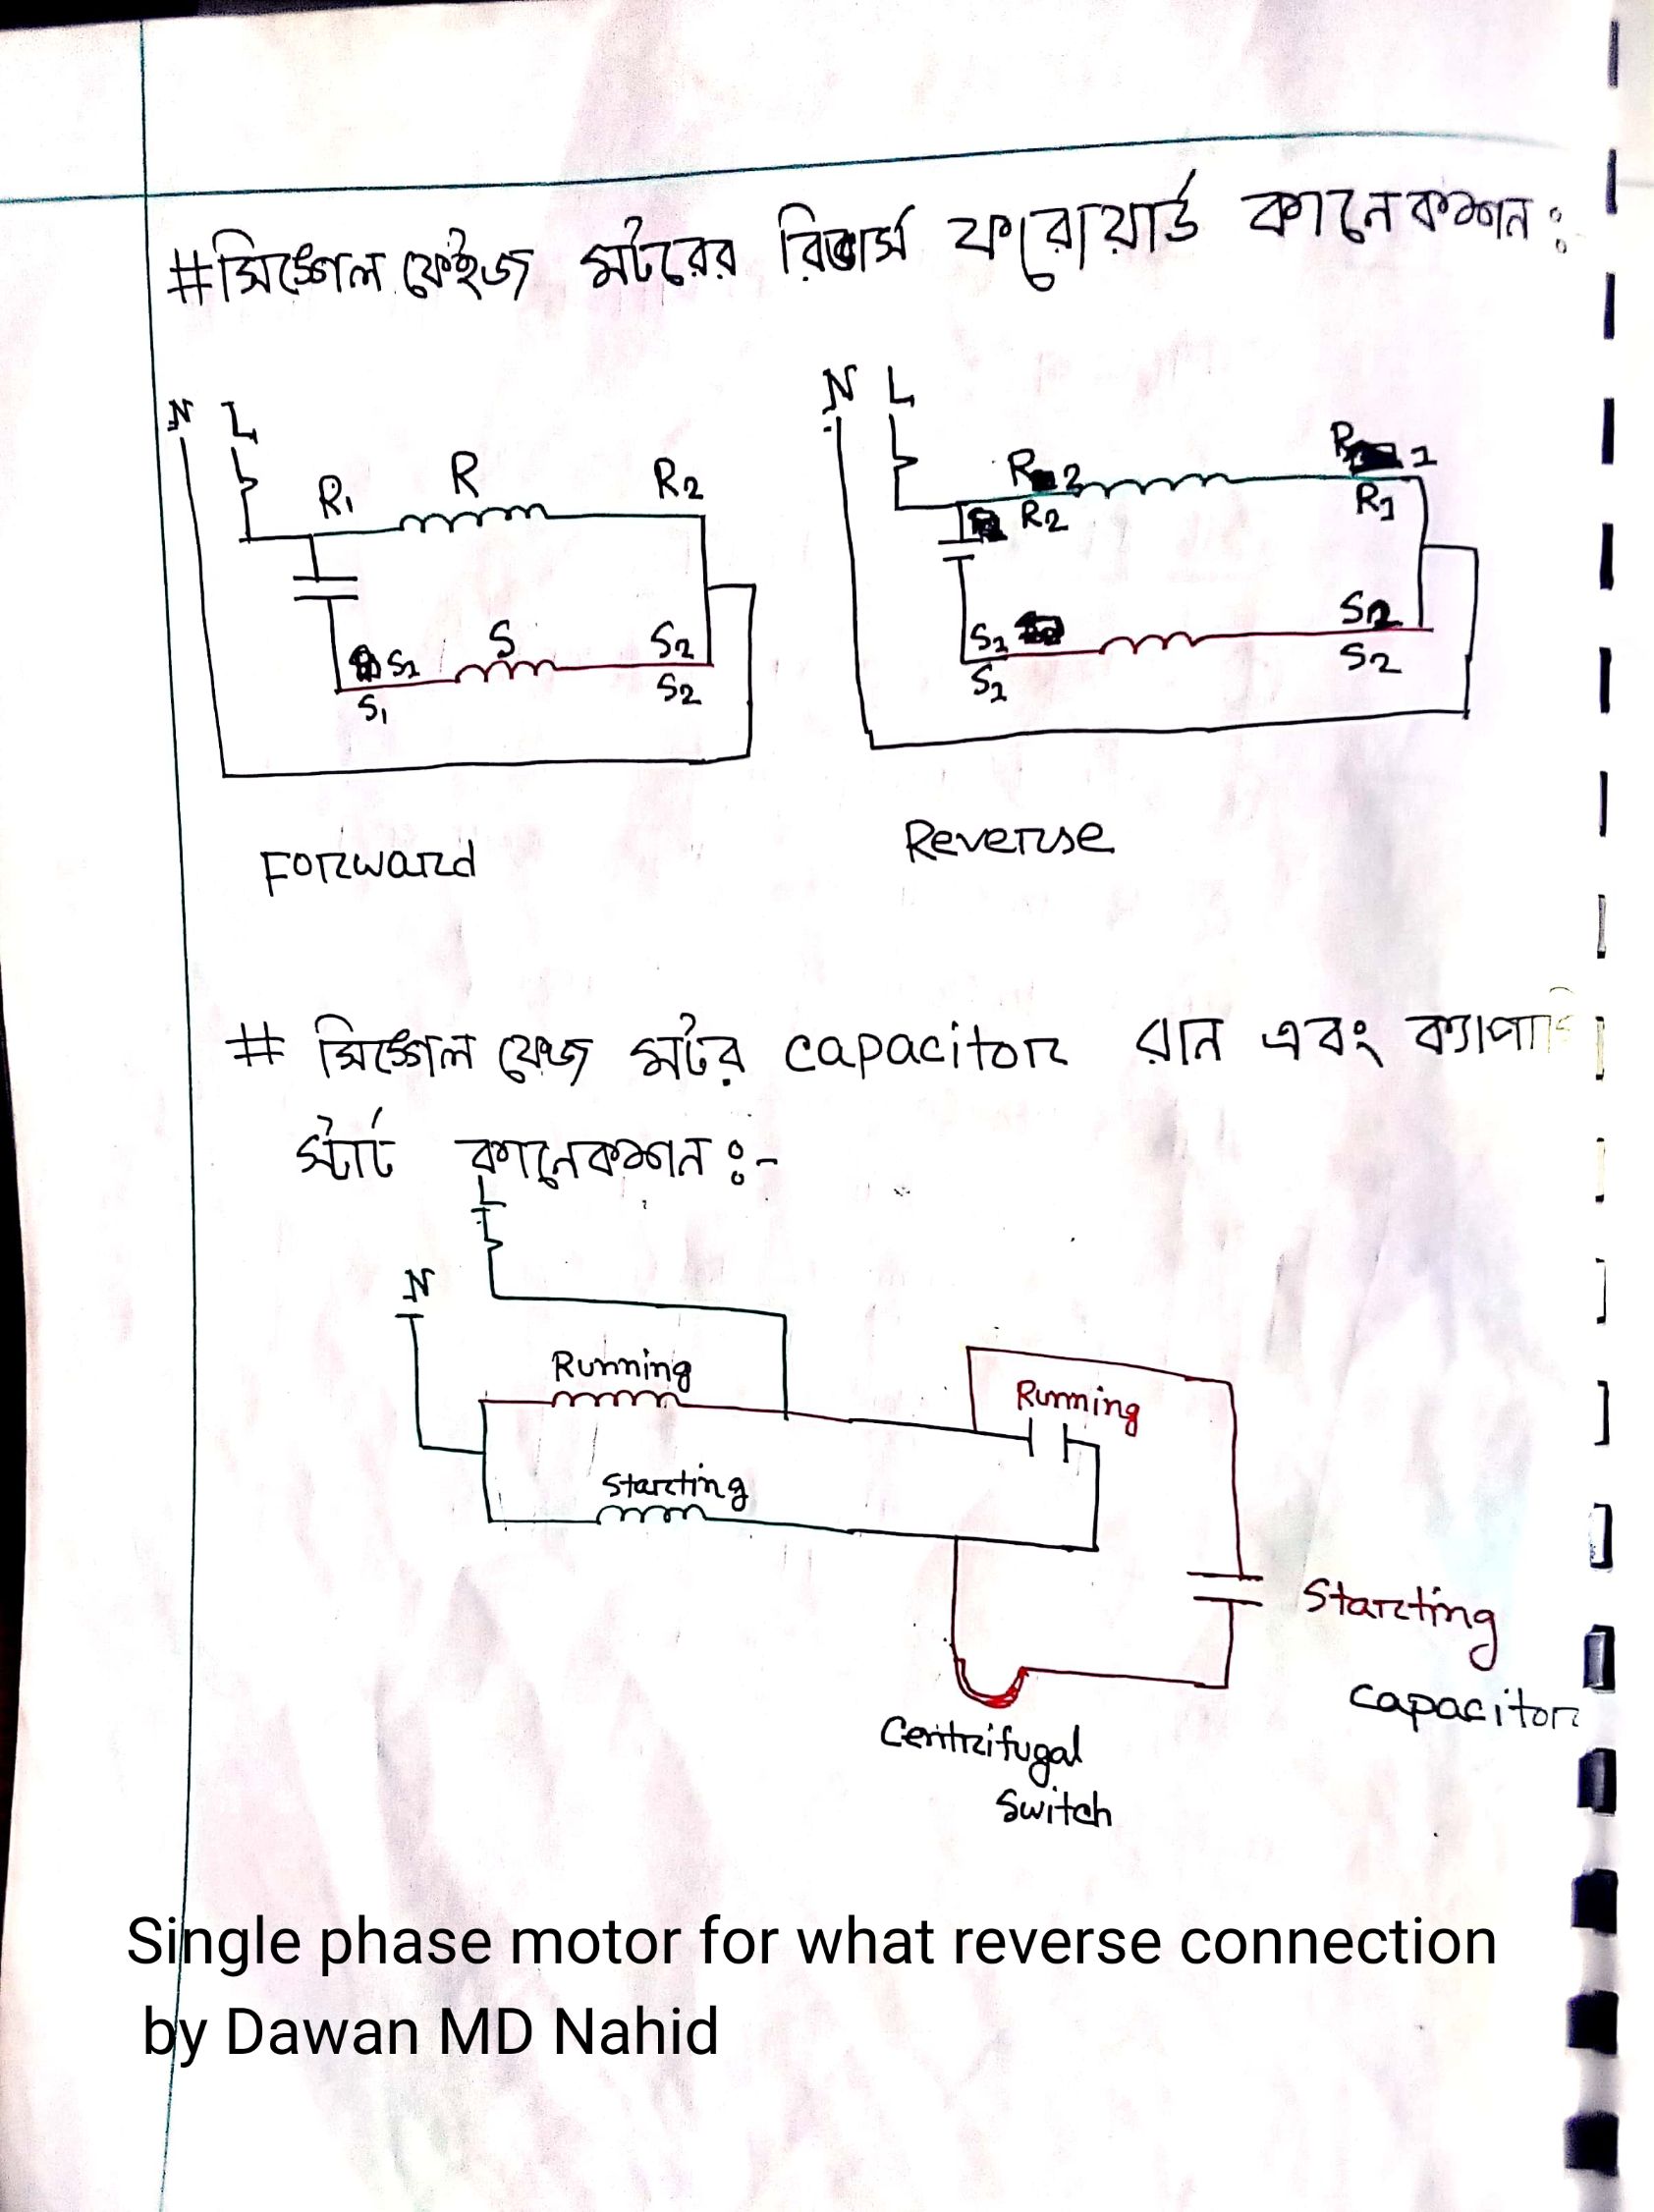 #সিঙ্গেল ফেইজ মটরের রিভার্স ফরোয়ার্ড কানেকশন:
N L
R1 R R2
S1 S S2
S1 S2
Forward
N L
R2 R1
R2 R1
S1 S2
S1 S2
Reverse
# সিঙ্গেল ফেজ মটর capacitor রান এবং ক্যাপা
স্টার্ট কানেকশন :-
L
N
Running
Running
Starting
Starting
capacitor
Centrifugal
Switch
Single phase motor for what reverse connection
by Dawan MD Nahid